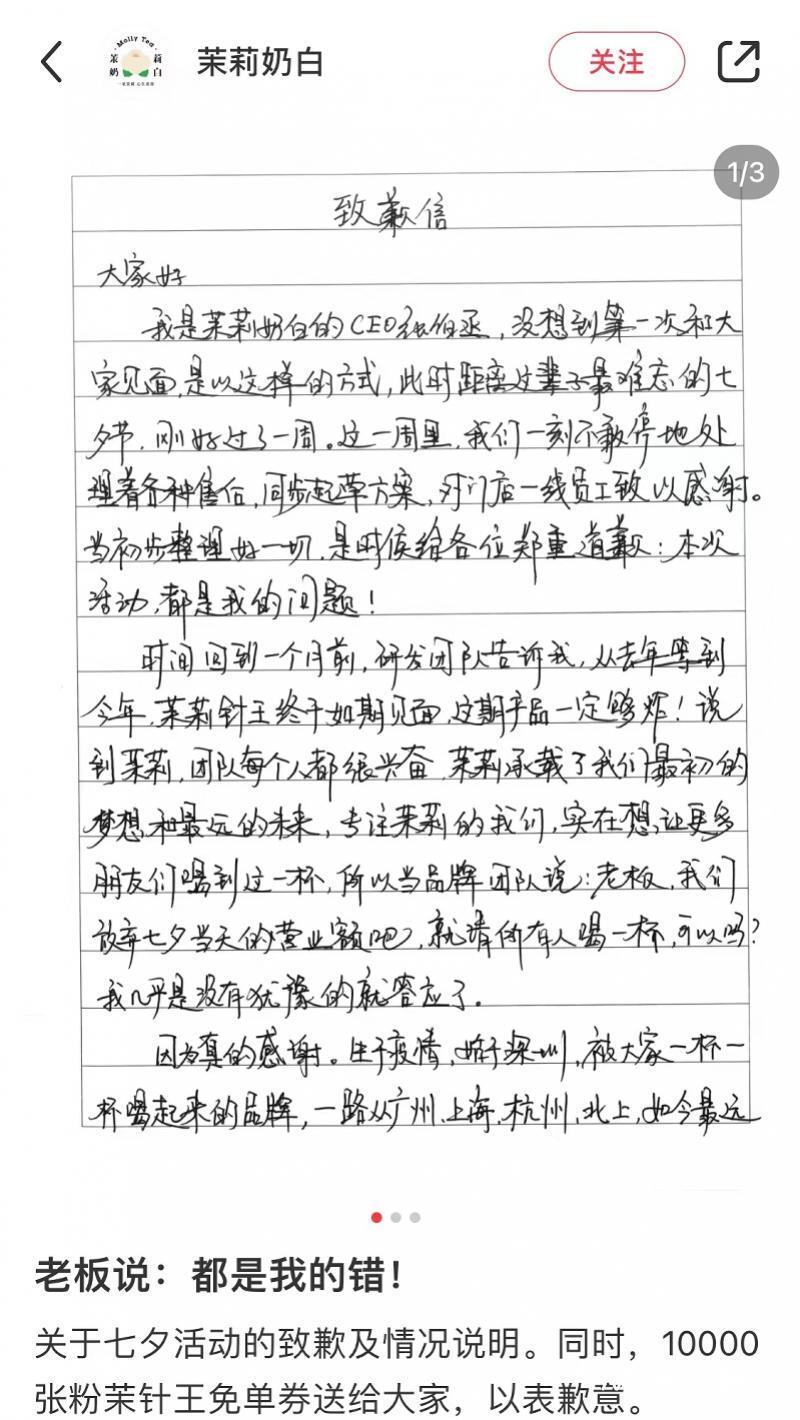 Molly Tea
茉莉
奶白
茉莉奶白
关注
1/3
致歉信
大家好
我是茉莉奶白的CEO张伯丞，没想到第一次和大
家见面，是以这样的方式，此时距离这辈子最难忘的七
夕节，刚好过了一周。这一周里，我们一刻不敢停地处
理着各种售后，同步起草方案，对门店一线员工致以感谢。
当初步整理好一切，是时候给各位郑重道歉：本次
活动，都是我的问题！
时间回到一个月前，研发团队告诉我，从去年等到
今年，茉莉针王终于如期见面，这期产品一定够炸！说
到茉莉，团队每个人都很兴奋，茉莉承载了我们最初的
梦想和最远的未来，专注茉莉的我们，实在想让更多
朋友们喝到这一杯，所以当品牌团队说：老板，我们
放弃七夕当天的营业额吧，就请所有人喝一杯，可以吗？
我几乎是没有犹豫的就答应了。
因为真的感谢。生于疫情，始于深圳，被大家一杯一
杯喝起来的品牌，一路从广州、上海、杭州、北上，如今最远
老板说：都是我的错！
关于七夕活动的致歉及情况说明。同时，10000
张粉茉针王免单券送给大家，以表歉意。